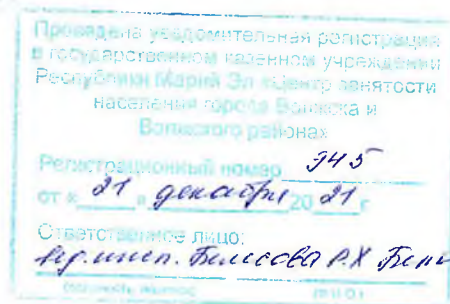 Проведена уведомительная регистрация
в государственном казенном учреждении
Республики Марий Эл «Центр занятости
населения города Волжска и
Волжского района»
Регистрационный номер 945
от «21» декабря 2021 г
Ответственное лицо:
вед. инсп. Р.Х